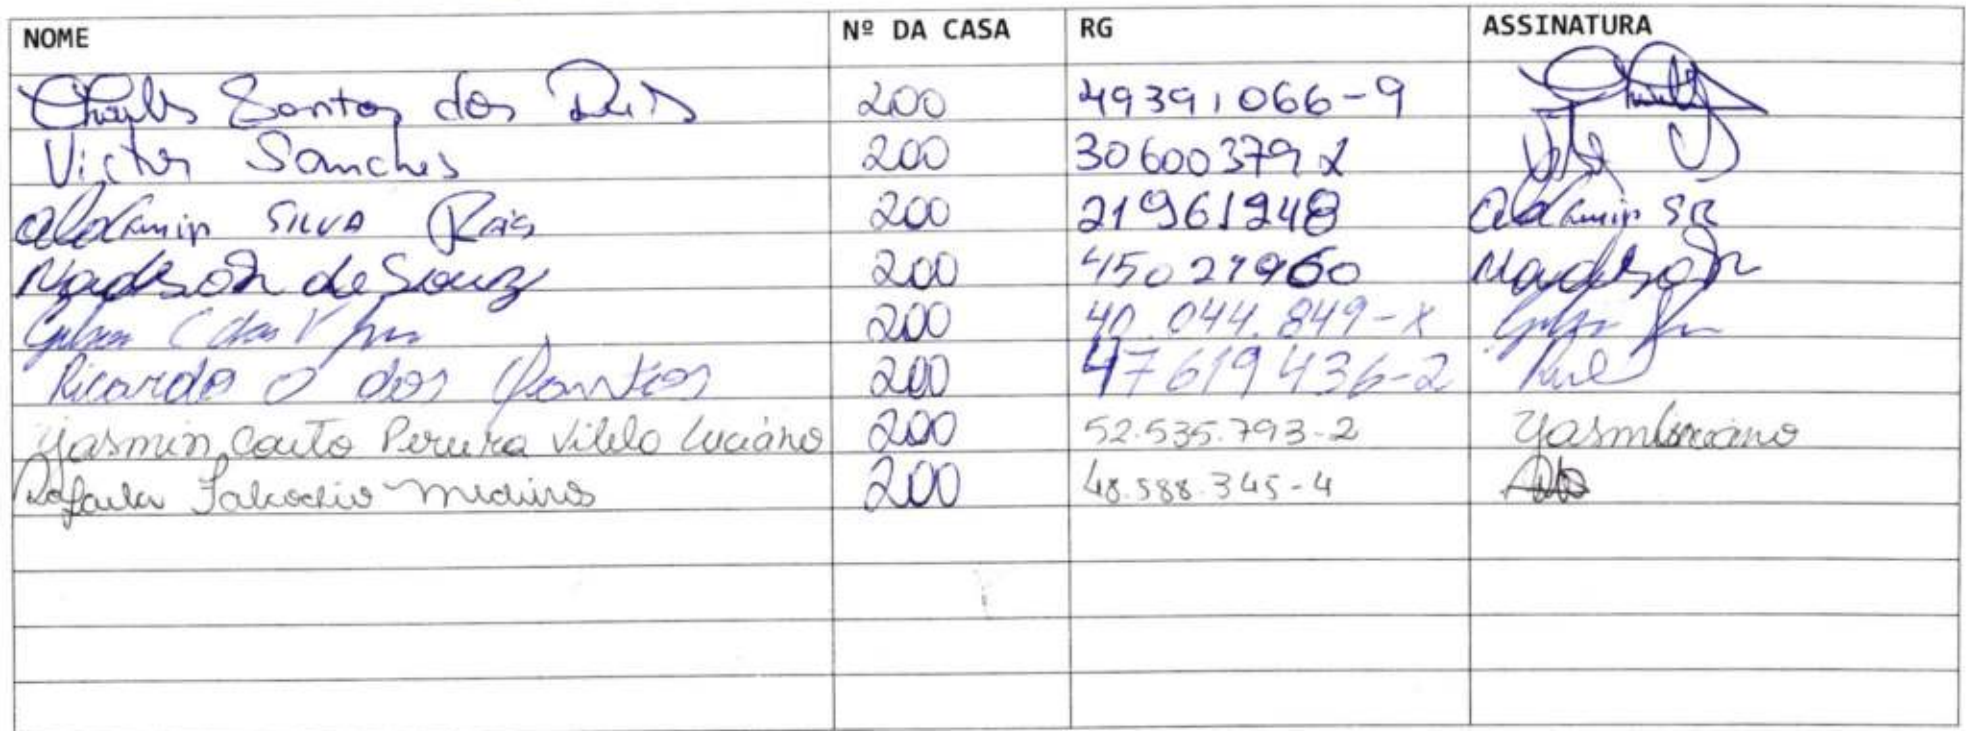 NOME Nº DA CASA RG ASSINATURA
Charles Santos dos Reis 200 49391066-9
Victor Sanches 200 30600379X
Aldamir SILVA Reis 200 21961948 Aldamir SR
Madson de Souz 200 45021960 Madson
200 40.044.849-X
Ricardo O dos Santos 200 47619436-2
Yasmin Couto Pereira Vilela Luciano 200 52.535.793-2 Yasmluciano
Rafaela Medeiros 200 48.588.345-4